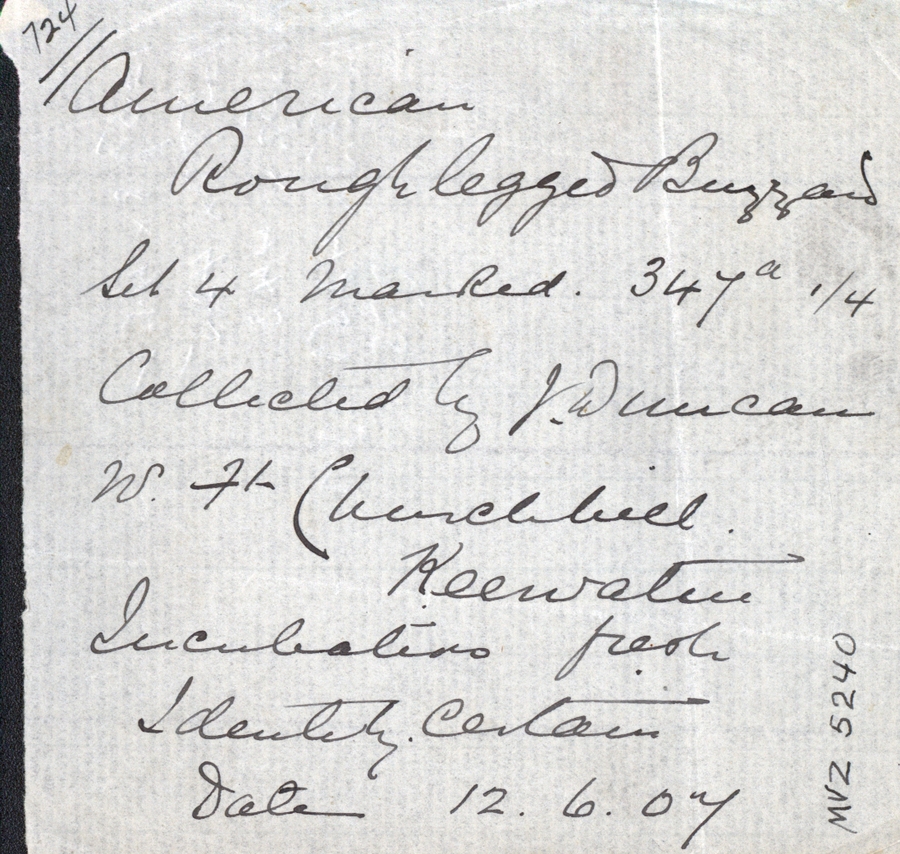 724//
American
Rough legged Buzzard
Set 4 Marked. 347a 1/4
Collected by J. Duncan
N. Ft Churchill.
Keewatin
Incubation fresh
Identity. Certain
Date 12. 6. 07
MVZ 5240